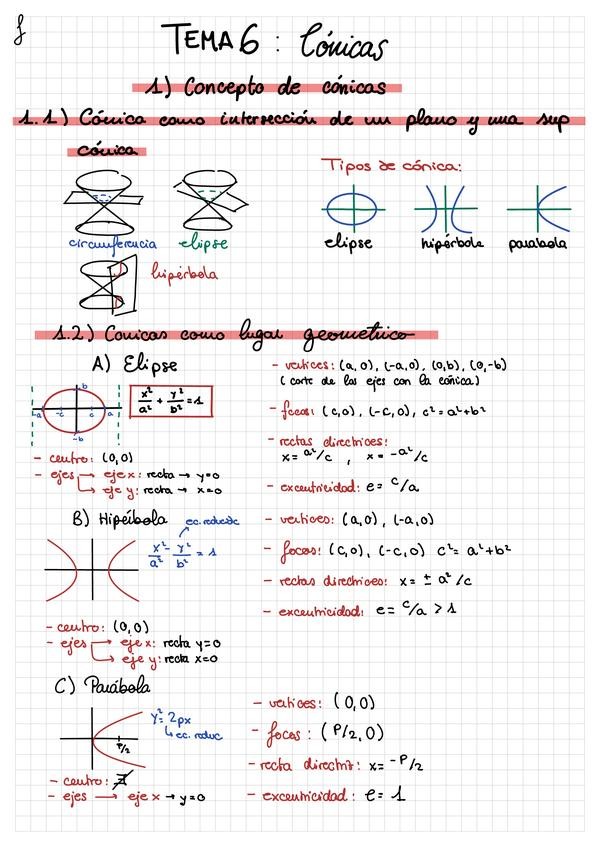 TEMA 6 : Cónicas
1) Concepto de cónicas
1.1) Cónica como intersección de un plano y una sup
cónica
Tipos de cónica:
circunferencia elipse
elipse hipérbola parabola
hipérbola
1.2) Conicas como lugar geometrico
A) Elipse
x²/a² + y²/b² = 1
b
-a -c c a
-b
- centro: (0,0)
- ejes → eje x: recta → y=0
→ eje y: recta → x=0
- vertices: (a,0), (-a,0), (0,b), (0,-b)
( corte de los ejes con la cónica)
- focos: (c,0), (-c,0), c²=a²+b²
- rectas directrices:
x= a²/c , x= -a²/c
- excentricidad: e= c/a
B) Hipérbola
ec. reducida
x²/a² - y²/b² = 1
- centro: (0,0)
- ejes → eje x: recta y=0
→ eje y: recta x=0
- vertices: (a,0), (-a,0)
- focos: (c,0), (-c,0) c²= a²+b²
- rectas directrices: x= ± a²/c
- excentricidad: e= c/a > 1
C) Parábola
y²= 2px
↳ ec. reduc
P/2
- centro: ∄
- ejes → eje x → y=0
- vertices: (0,0)
- focos: (P/2, 0)
- recta directriz: x= -P/2
- excentricidad: e= 1